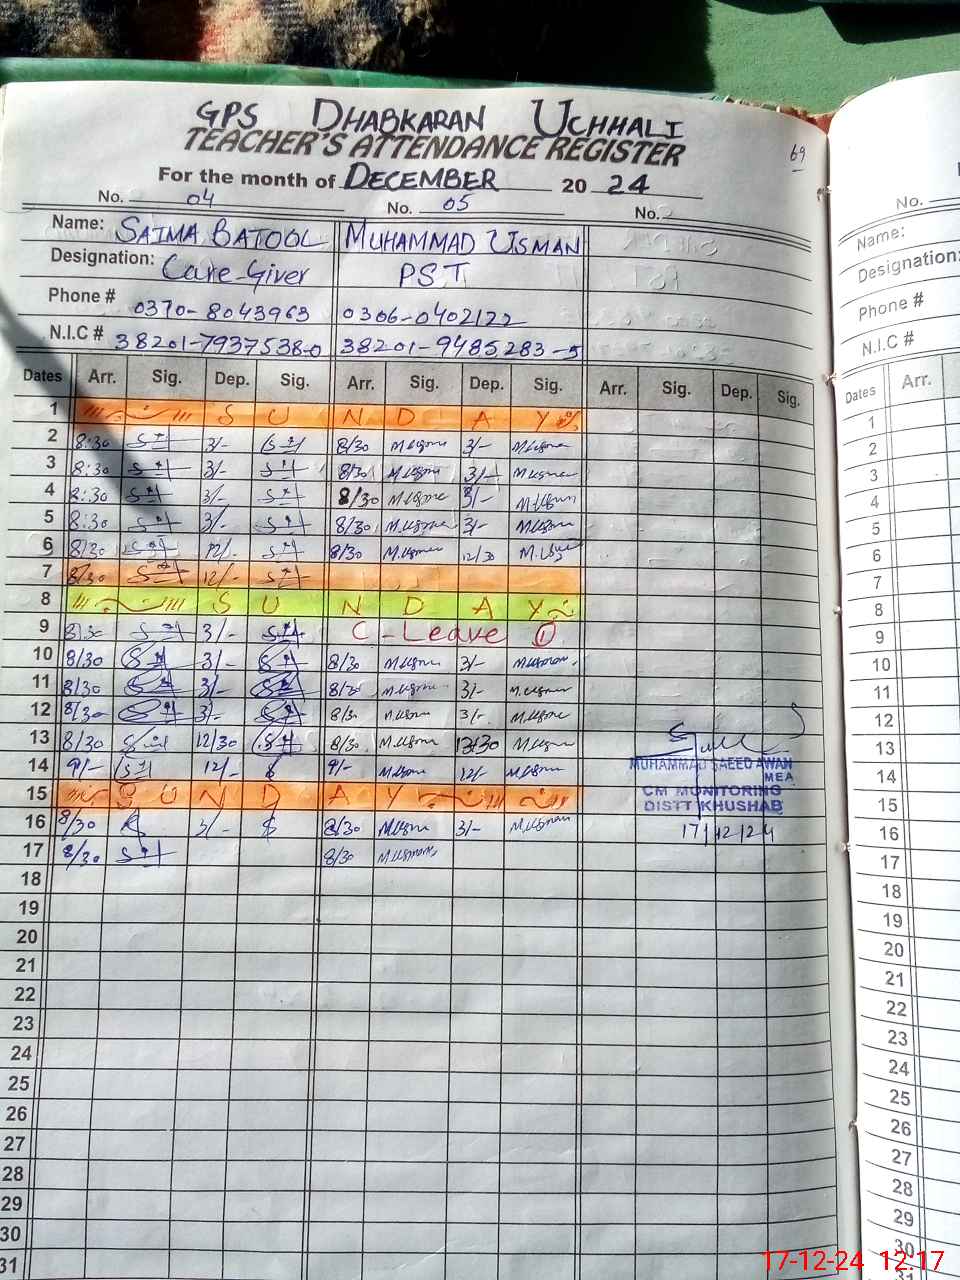 GPS DHABKARAN UCHHALI
TEACHER'S ATTENDANCE REGISTER
69
For the month of DECEMBER 20 24
No. 04 No. 05 No.
Name: SAIMA BATOOL MUHAMMAD USMAN
Designation: Care Giver PST
Phone # 0370-8043963 0306-0402122
N.I.C # 38201-7937538-0 38201-9485283-5
Dates Arr. Sig. Dep. Sig. Arr. Sig. Dep. Sig. Arr. Sig. Dep. Sig.
1 S U N D A Y
2 8:30 3/- 8/30 M.Usman 3/- M.Usman
3 8:30 3/- 8/30 M.Usman 3/- M.Usman
4 8:30 3/- 8/30 M.Usman 3/- M.Usman
5 8:30 3/- 8/30 M.Usman 3/- M.Usman
6 8/30 12/- 8/30 M.Usman 12/30 M.Usman
7 8/30 12/-
8 S U N D A Y
9 8/30 3/- C-Leave 1
10 8/30 3/- 8/30 M.Usman 3/- M.Usman
11 8/30 3/- 8/30 M.Usman 3/- M.Usman
12 8/30 3/- 8/30 M.Usman 3/- M.Usman
13 8/30 12/30 8/30 M.Usman 12/30 M.Usman
14 9/- 12/- 9/- M.Usman 12/- M.Usman
15 S U N D A Y
16 8/30 3/- 8/30 M.Usman 3/- M.Usman
17 8/30 8/30 M.Usman
18
19
20
21
22
23
24
25
26
27
28
29
30
31
MUHAMMAD SAEED AWAN
MEA
CM MONITORING
DISTT KHUSHAB
17/12/24
No.
Name:
Designation:
Phone #
N.I.C #
Dates Arr.
1
2
3
4
5
6
7
8
9
10
11
12
13
14
15
16
17
18
19
20
21
22
23
24
25
26
27
28
29
30
31
17-12-24 12:17